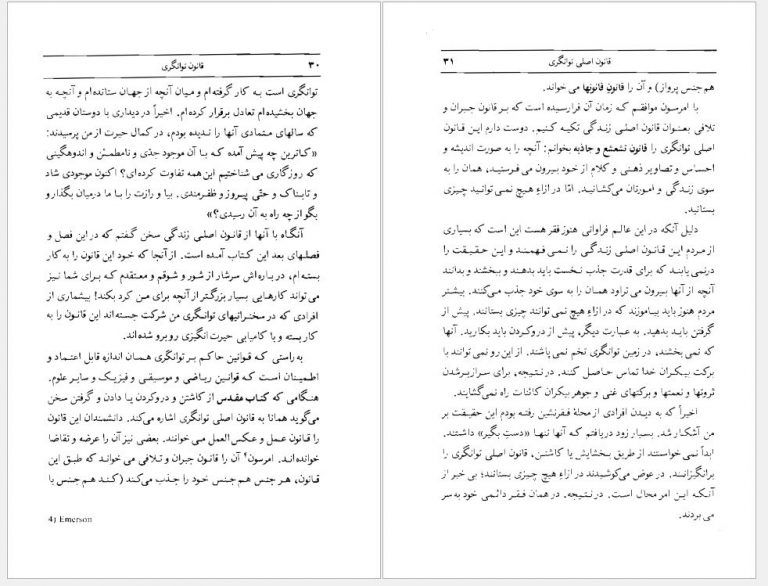 ۳۰ قانون توانگری
توانگری است به کار گرفته‌ام و میان آنچه از جهان ستانده‌ام و آنچه به
جهان بخشیده‌ام تعادل برقرار کرده‌ام. اخیراً در دیداری با دوستان قدیمی
که سالهای متمادی آنها را ندیده بودم، در کمال حیرت از من پرسیدند:
«کاترین چه پیش آمده که با آن موجود جدّی و نامطمئن و اندوهگینی
که روزگاری می شناختیم این همه تفاوت کرده‌ای؟ اکنون موجودی شاد
و تابناک و حتّی پیروز و ظفرمندی. بیا و رازت را با ما درمیان بگذار و
بگو از چه راه به آن رسیدی؟»
آنگاه با آنها از قانون اصلی زندگی سخن گفتم که در این فصل و
فصلهای بعد این کتاب آمده است. از آنجا که خود این قانون را به کار
بسته‌ام، در باره‌اش سرشار از شور و شوقم و معتقدم که برای شما نیز
می تواند کارهایی بسیار بزرگتر از آنچه برای من کرد بکند! بیشماری از
افرادی که در سخنرانیهای توانگری من شرکت جسته‌اند این قانون را به
کار بسته و با کامیابی حیرت انگیزی روبرو شده‌اند.
به راستی که قوانین حاکم بر توانگری همان اندازه قابل اعتماد و
اطمینان است که قوانین ریاضی و موسیقی و فیزیک و سایر علوم.
هنگامی که کتاب مقدس از کاشتن و درو کردن یا دادن و گرفتن سخن
می‌گوید همانا به قانون اصلی توانگری اشاره می‌کند. دانشمندان این قانون
را قانون عمل و عکس العمل می خوانند. بعضی نیز آن را عرضه و تقاضا
خوانده‌اند. امرسون۴ آن را قانون جبران و تلافی می خواند که طبق این
قانون، هر جنس هم جنس خود را جذب می‌کند (کند هم جنس با
4) Emerson
قانون اصلی توانگری ۳۱
هم جنس پرواز) و آن را قانونِ قانونها می خواند.
با امرسون موافقم که زمان آن فرارسیده است که بر قانون جبران و
تلافی بعنوان قانون اصلی زندگی تکیه کنیم. دوست دارم این قانون
اصلی توانگری را قانون تشعشع و جاذبه بخوانم: آنچه را به صورت اندیشه و
احساس و تصاویر ذهنی و کلام از خود بیرون می فرستید، همان را به
سوی زندگی و امورتان می‌کشانید. امّا در ازاءِ هیچ نمی توانید چیزی
بستانید.
دلیل آنکه در این عالم فراوانی هنوز فقر هست این است که بسیاری
از مردم این قانون اصلی زندگی را نمی فهمند و این حقیقت را
درنمی یابند که برای قدرت جذب نخست باید بدهند و ببخشند و بدانند
آنچه از آنها بیرون می تراود همان را به سوی خود جذب می‌کنند. بیشتر
مردم هنوز باید بیاموزند که در ازاءِ هیچ نمی توانند چیزی بستانند. پیش از
گرفتن باید بدهید. به عبارت دیگر، پیش از درو کردن باید بکارید. آنها
که نمی بخشند، در زمین توانگری تخم نمی پاشند. از این رو نمی توانند با
برکت بیکران خدا تماس حاصل کنند. در نتیجه، برای سرازیر شدن
ثروتها و نعمتها و برکتهای غنی و جوهر بیکران کائنات راه نمی‌گشایند.
اخیراً که به دیدن افرادی از محلهٔ فقرنشین رفته بودم این حقیقت بر
من آشکار شد. بسیار زود دریافتم که آنها تنها «دستِ بگیر» داشتند.
ابداً نمی خواستند از طریق بخشایش یا کاشتن، قانون اصلی توانگری را
برانگیزانند. در عوض می‌کوشیدند در ازاءِ هیچ چیزی بستانند؛ بی خبر از
آنکه این امر محال است. در نتیجه، در همان فقر دائمی خود به سر
می بردند.